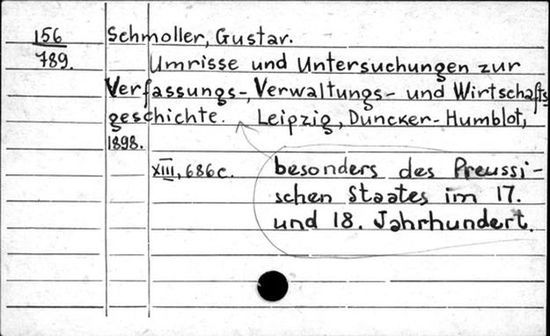 156
789.
Schmoller, Gustar.
Umrisse und Untersuchungen zur
Verfassungs-, Verwaltungs- und Wirtschafts
geschichte. Leipzig, Duncker-Humblot,
1898.
XIII, 686c.
besonders des Preussi-
schen Staates im 17.
und 18. Jahrhundert.